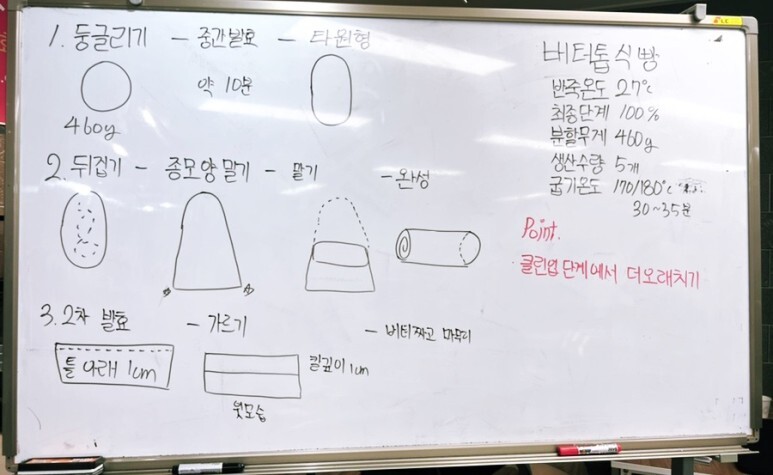 1. 둥글리기 - 중간발효 - 타원형
약 10분
460g
2. 뒤겁기 - 종모양 말기 - 말기 - 완성
3. 2차 발효 - 가르기 - 버터짜고 마무리
틀 아래 1cm
칼깊이 1cm
윗모습
버터톱식빵
반죽온도 27℃
최종단계 100%
분할무게 460g
생산수량 5개
굽기온도 170/180℃
30~35분
Point.
클린업단계에서 더오래치기